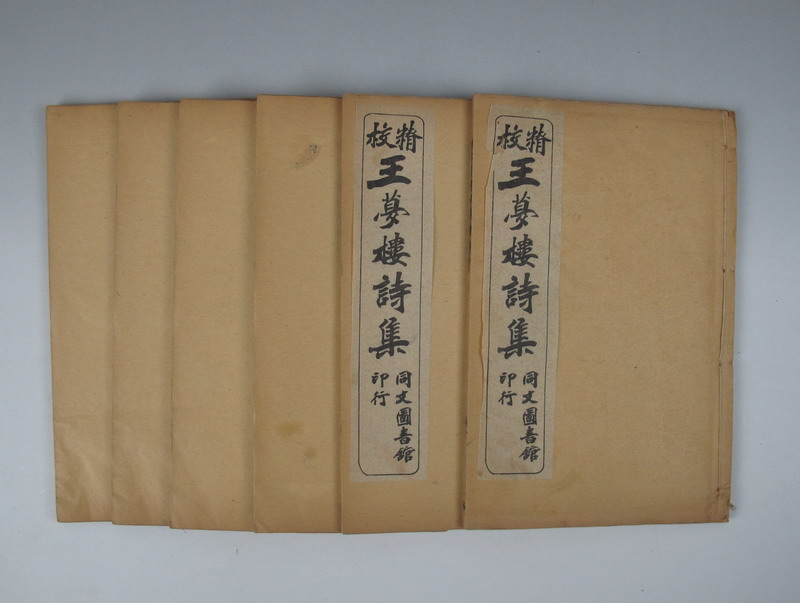 精校
王夢樓詩集
同文圖書館
印行
精校
王夢樓詩集
同文圖書館
印行